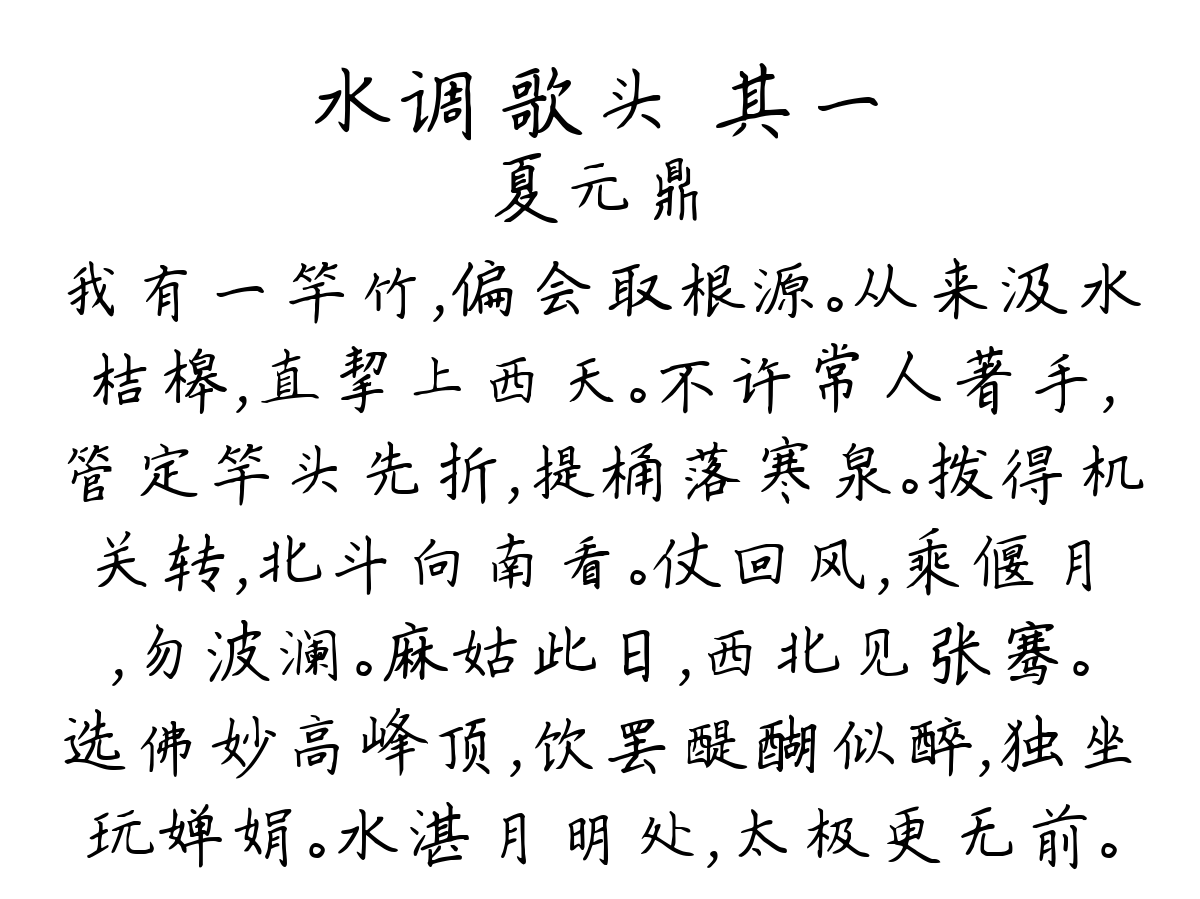 水调歌头 其一
夏元鼎
我有一竿竹,偏会取根源。从来汲水
桔槔,直挈上西天。不许常人著手,
管定竿头先折,提桶落寒泉。拨得机
关转,北斗向南看。仗回风,乘偃月
,勿波澜。麻姑此日,西北见张骞。
选佛妙高峰顶,饮罢醍醐似醉,独坐
玩婵娟。水湛月明处,太极更无前。